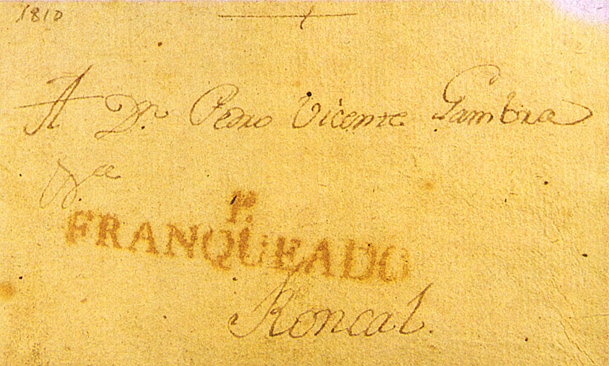 1810
A Dn. Pedro Vicente Gambra
F.
FRANQUEADO
Roncal.